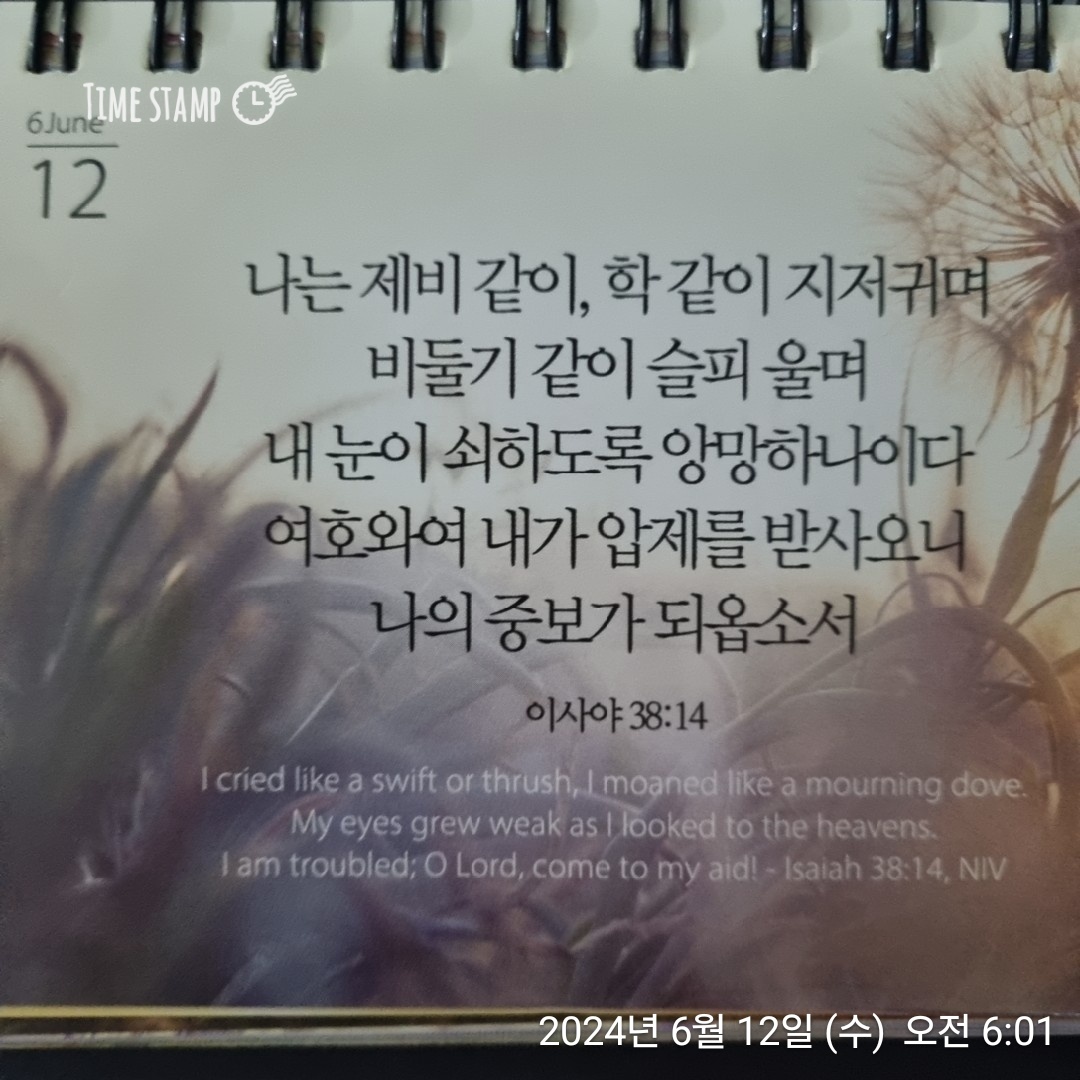 TIME STAMP
6June
12
나는 제비 같이, 학 같이 지저귀며
비둘기 같이 슬피 울며
내 눈이 쇠하도록 앙망하나이다
여호와여 내가 압제를 받사오니
나의 중보가 되옵소서
이사야 38:14
I cried like a swift or thrush, I moaned like a mourning dove.
My eyes grew weak as I looked to the heavens.
I am troubled; O Lord, come to my aid! - Isaiah 38:14, NIV
2024년 6월 12일 (수) 오전 6:01